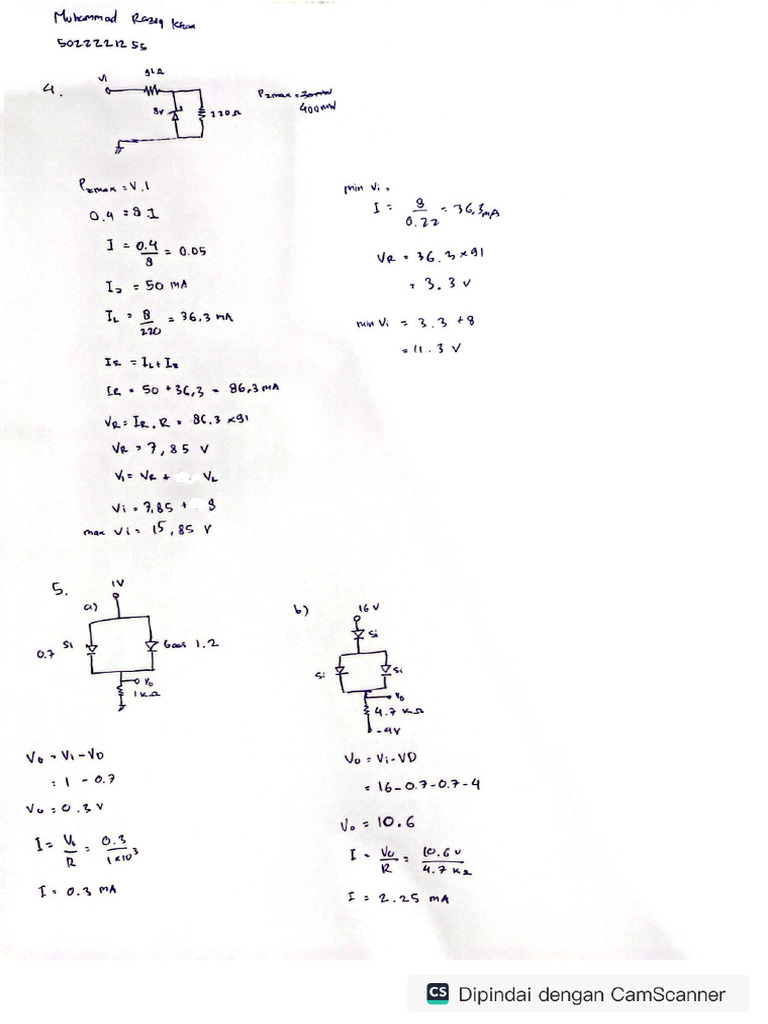 Muhammad Razaq Khan
5022221255
4.
Vi
91Ω
8V
220Ω
Pzmax =
400mW
Pzmax = V.I
0.4 = 8 I
I = 0.4/8 = 0.05
Iz = 50 mA
IL = 8/220 = 36,3 mA
IR = IL + Iz
IR = 50 + 36,3 = 86,3 mA
VR = IR . R = 86.3 x 91
VR = 7,85 V
Vi = VR + VL
Vi = 7,85 + 8
max Vi = 15,85 V
min Vi =
I = 8/0.22 = 36,3 mA
VR = 36.3 x 91
= 3.3 V
min Vi = 3.3 + 8
= 11.3 V
5.
a)
1V
0.7 Si
GaAs 1.2
Vo
1 KΩ
Vo = Vi - VD
= 1 - 0.7
Vo = 0.3 V
I = Vo/R = 0.3/1x10³
I = 0.3 mA
b)
16 V
Si
Si
Si
Vo
4.7 KΩ
-4V
Vo = Vi - VD
= 16 - 0.7 - 0.7 - 4
Vo = 10.6
I = Vo/R = 10.6 V/4.7 KΩ
I = 2.25 mA
CS Dipindai dengan CamScanner